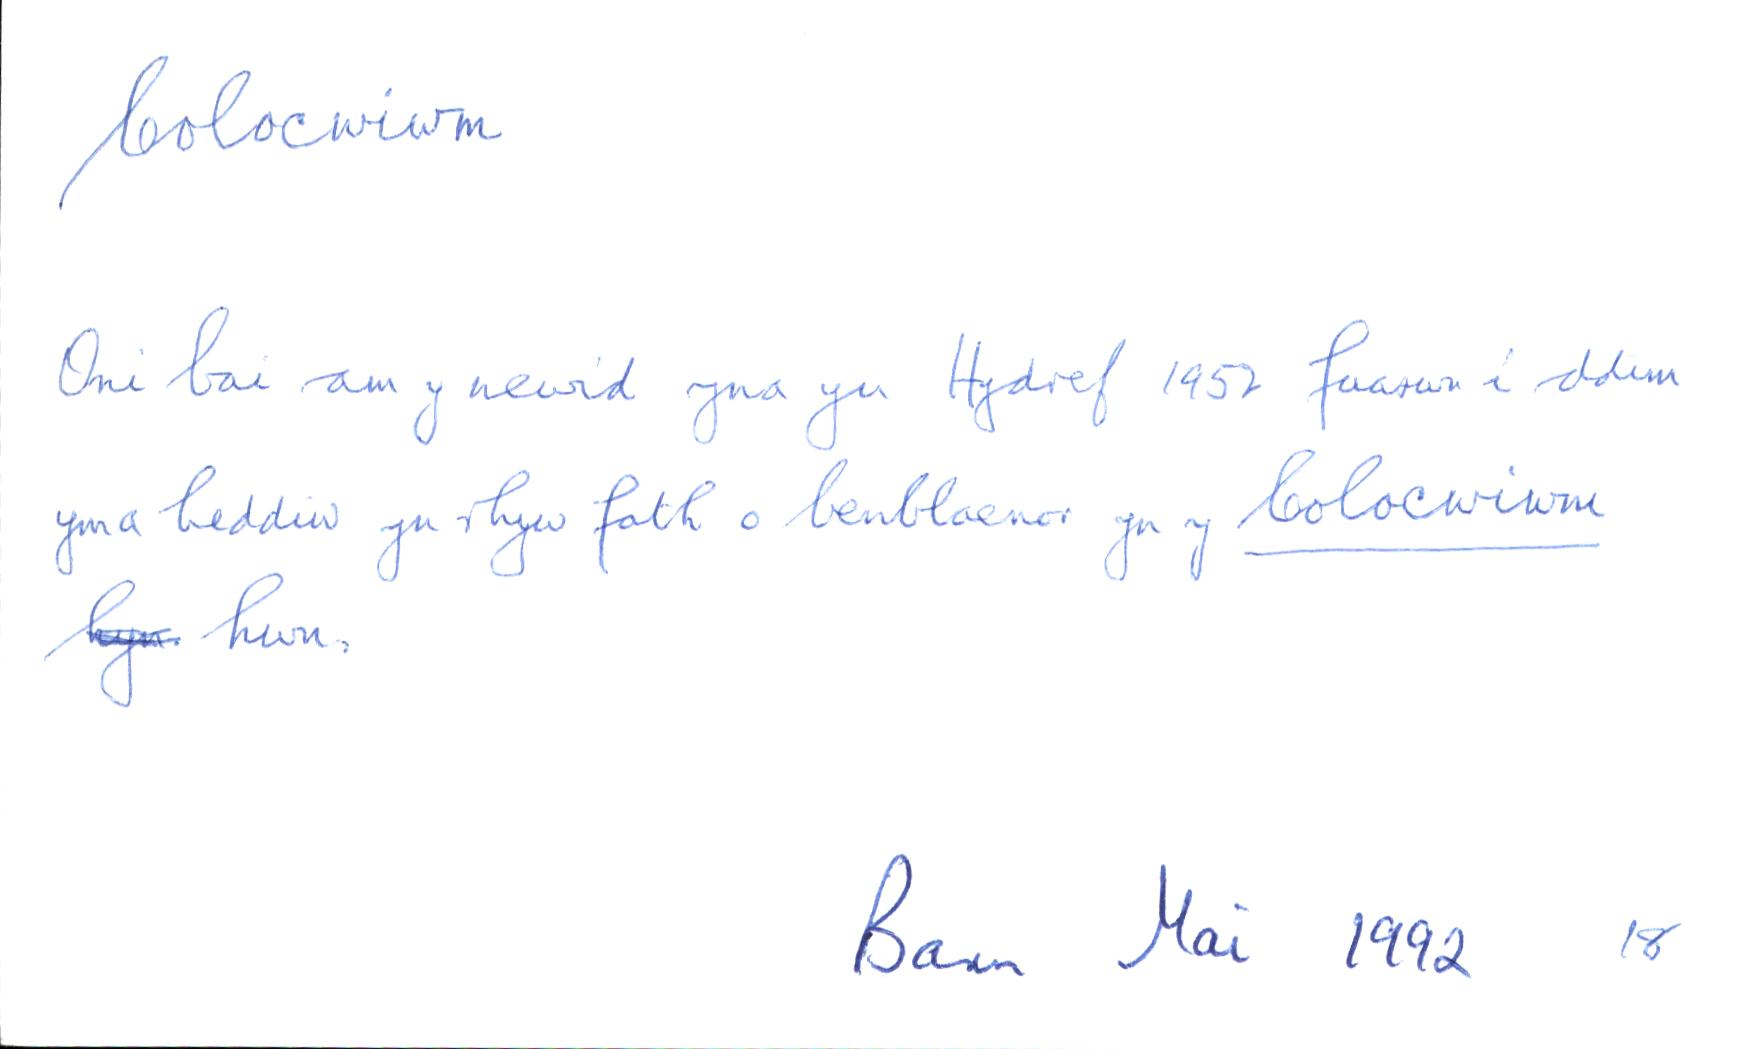 Colocwiwm
Oni bai am y newid yna yn Hydref 1952 fuaswn i ddim
yma heddiw yn rhyw fath o benblaenor yn y Colocwiwm
hyn. hwn.
Mai 1992 18